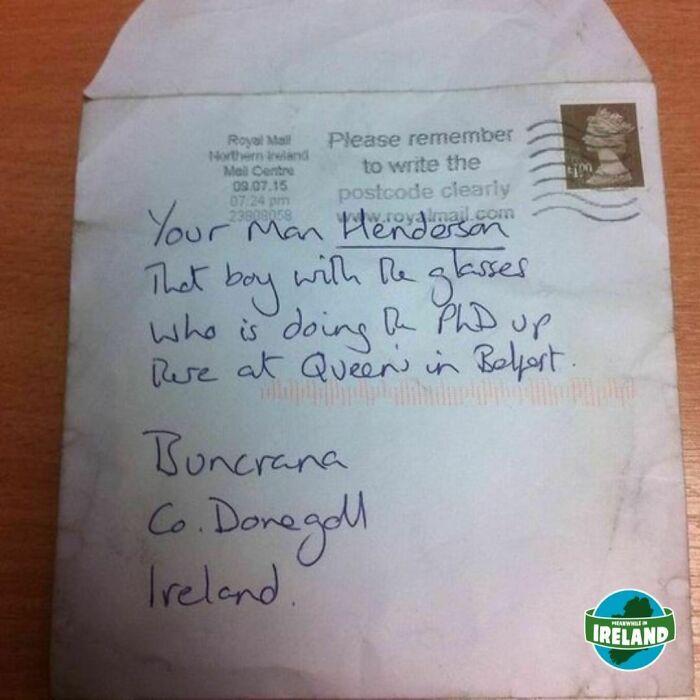 Royal Mail
Northern Ireland
Mail Centre
09.07.15
07:24 pm
23808058
Please remember
to write the
postcode clearly
www.royalmail.com
£1.00
Your Man Henderson
That boy with the glasses
who is doing the PhD up
here at Queen's in Belfast.
Buncrana
Co. Donegall
Ireland.
MEANWHILE IN
IRELAND